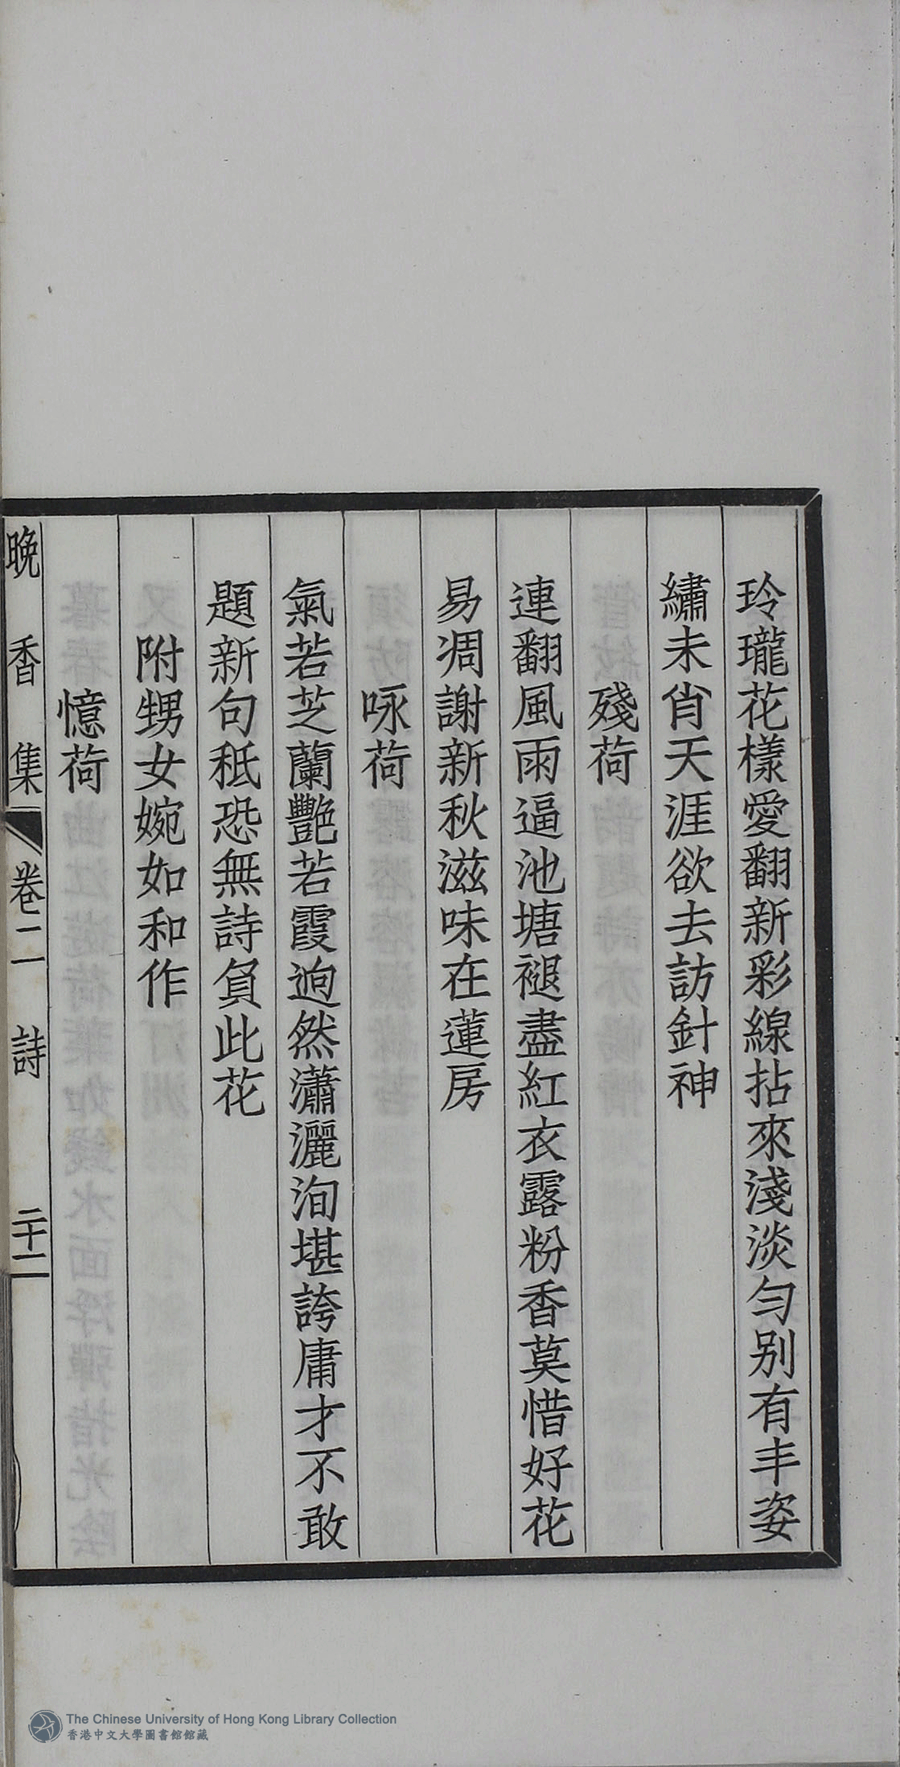 玲瓏花樣愛翻新彩線拈來淺淡勻別有丰姿
繡未肯天涯欲去訪針神
殘荷
連翻風雨逼池塘褪盡紅衣露粉香莫惜好花
易凋謝新秋滋味在蓮房
咏荷
氣若芝蘭艷若霞迥然瀟灑洵堪誇庸才不敢
題新句秪恐無詩負此花
附甥女婉如和作
憶荷
晚香集 卷二 詩 二十二
The Chinese University of Hong Kong Library Collection
香港中文大學圖書館館藏